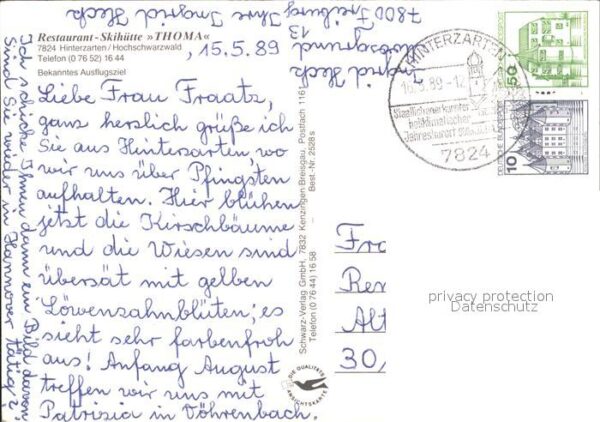 Restaurant-Skihütte »THOMA«
7824 Hinterzarten/Hochschwarzwald
Telefon (0 76 52) 16 44
Bekanntes Ausflugsziel
15.5.89
Liebe Frau Fraatz,
ganz herzlich grüße ich
Sie aus Hinterzarten, wo
wir uns über Pfingsten
aufhalten. Hier blühen
jetzt die Kirschbäume
und die Wiesen sind
übersät mit gelben
Löwenzahnblüten; es
sieht sehr farbenfroh
aus! Anfang August
treffen wir uns mit
Patrizia in Vöhrenbach.
Ich schicke Ihnen dann ein Bild davon.
Sind Sie wieder in Hannover tätig?
Ihre Ingrid Heck
Ingrid Heck
13
7800 Freiburg
Schwarz-Verlag GmbH, 7832 Kenzingen-Breisgau, Postfach 1161
Telefon (0 76 44) 16 58
Best.-Nr. 2528 s
DIE QUALITÄTS
ANSICHTSKARTE
HINTERZARTEN
16.5.89-12
Staatl. anerkannter
heilklimatischer
Jahreskurort
7824
50
10
DEUTSCHE BUNDESPOST
Fra
Ren
Alt
30,
privacy protection
Datenschutz